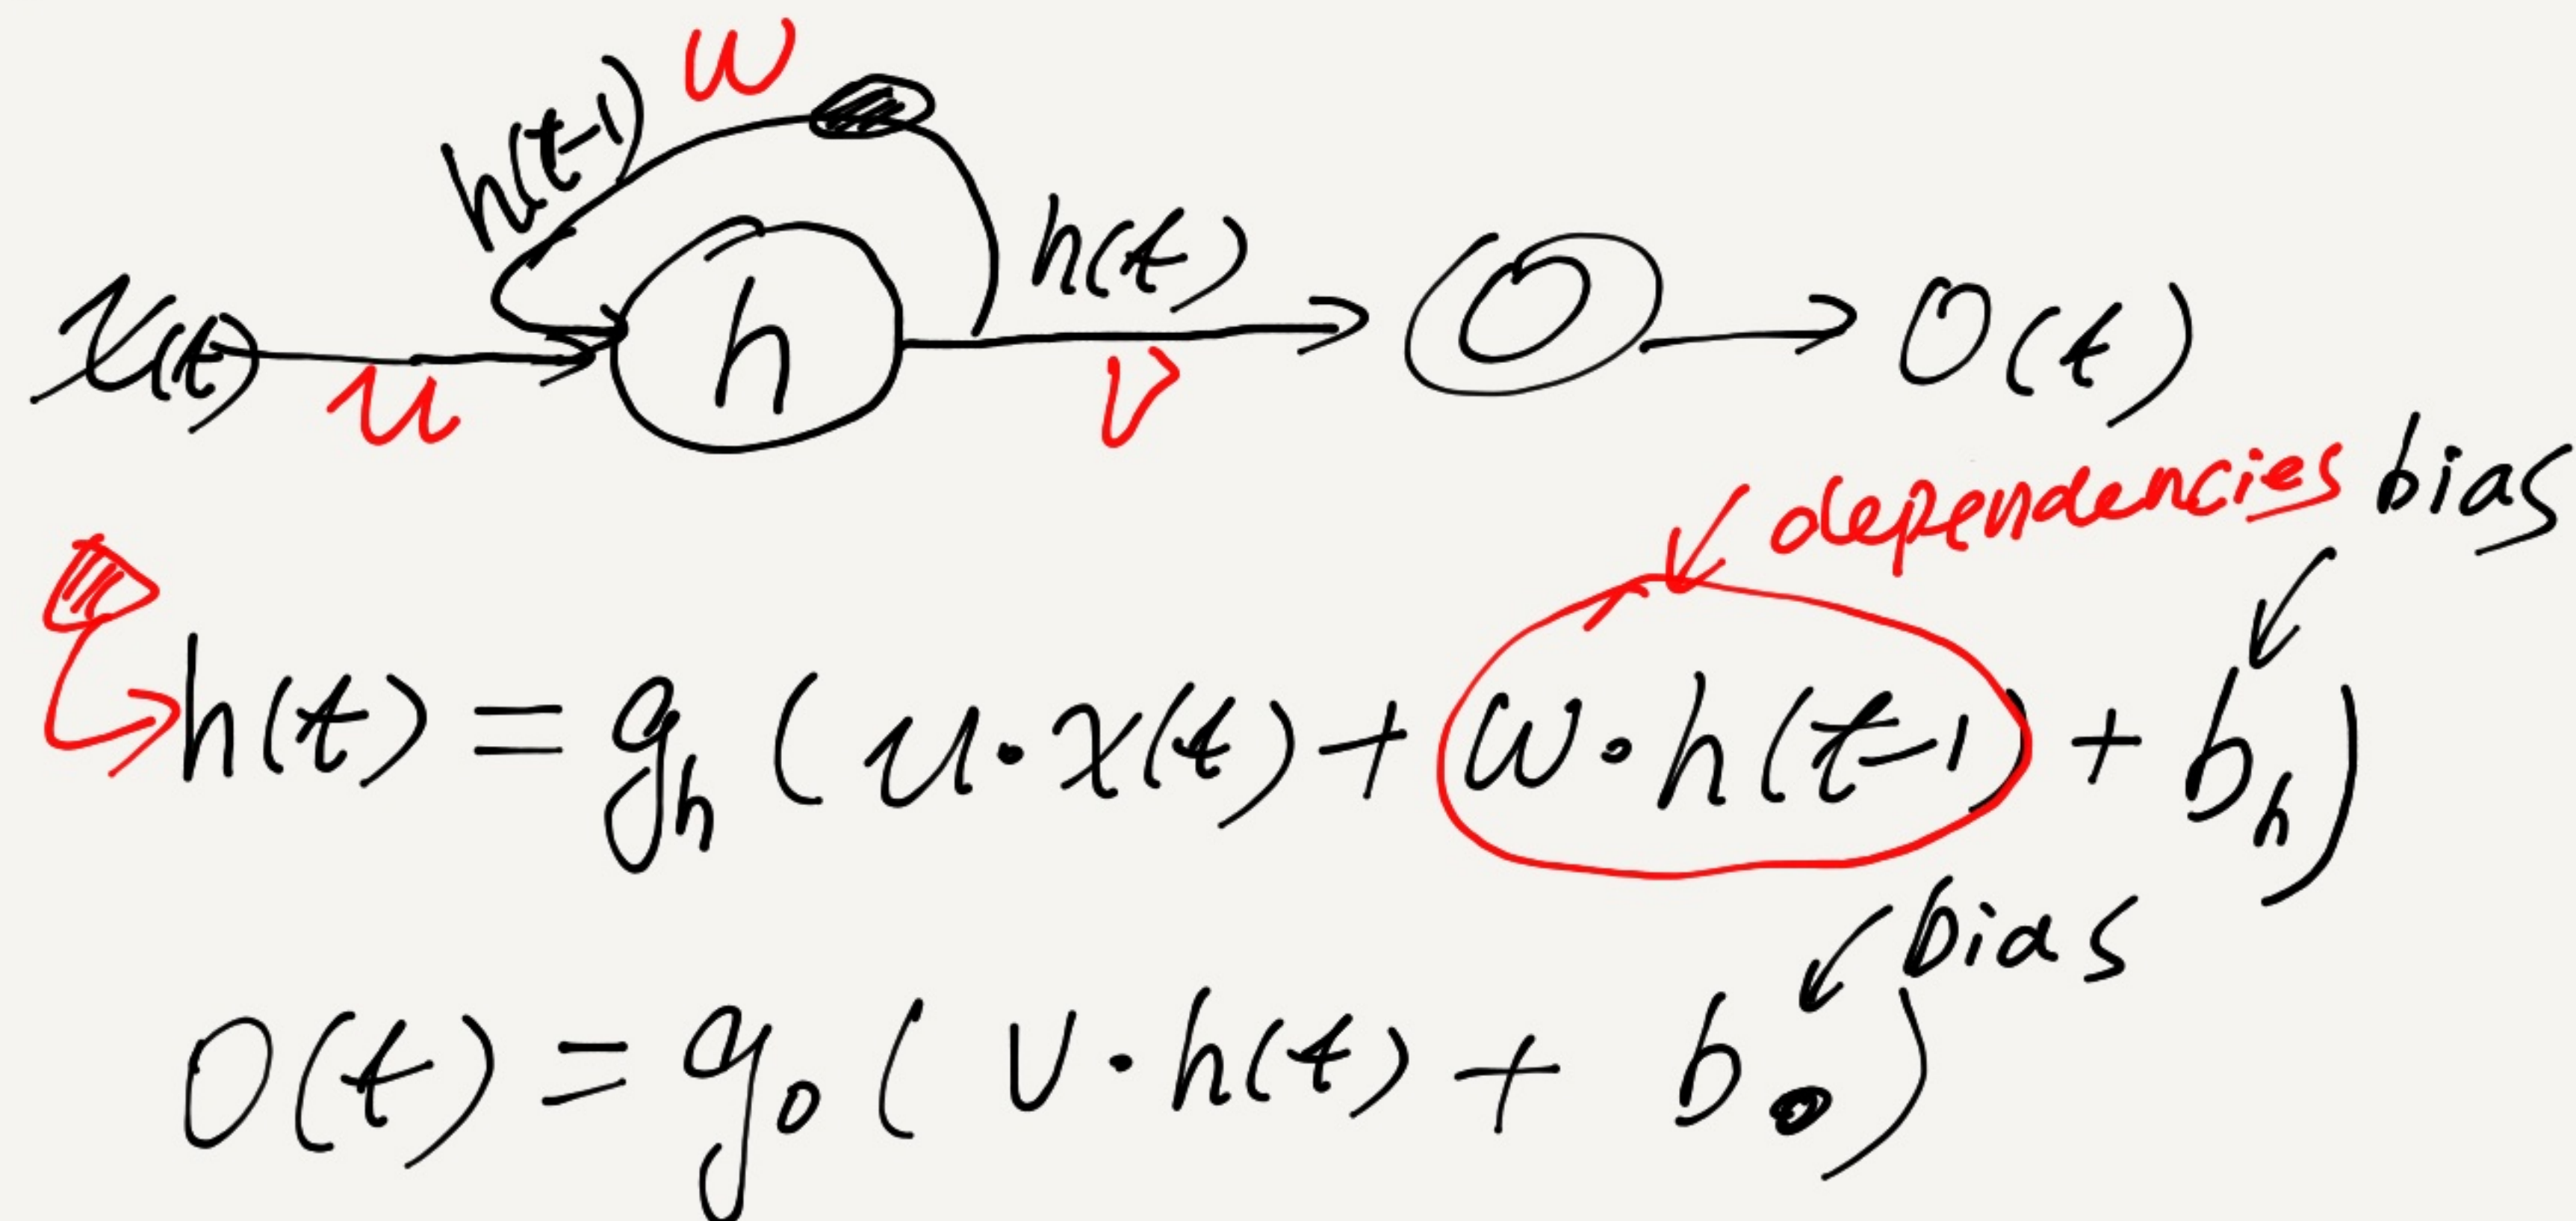 w
h(t-1)
x(t) u h h(t) v O O(t)
dependencies bias
h(t) = g_h ( u · x(t) + w · h(t-1) + b_h )
bias
O(t) = g_o ( v · h(t) + b_o )